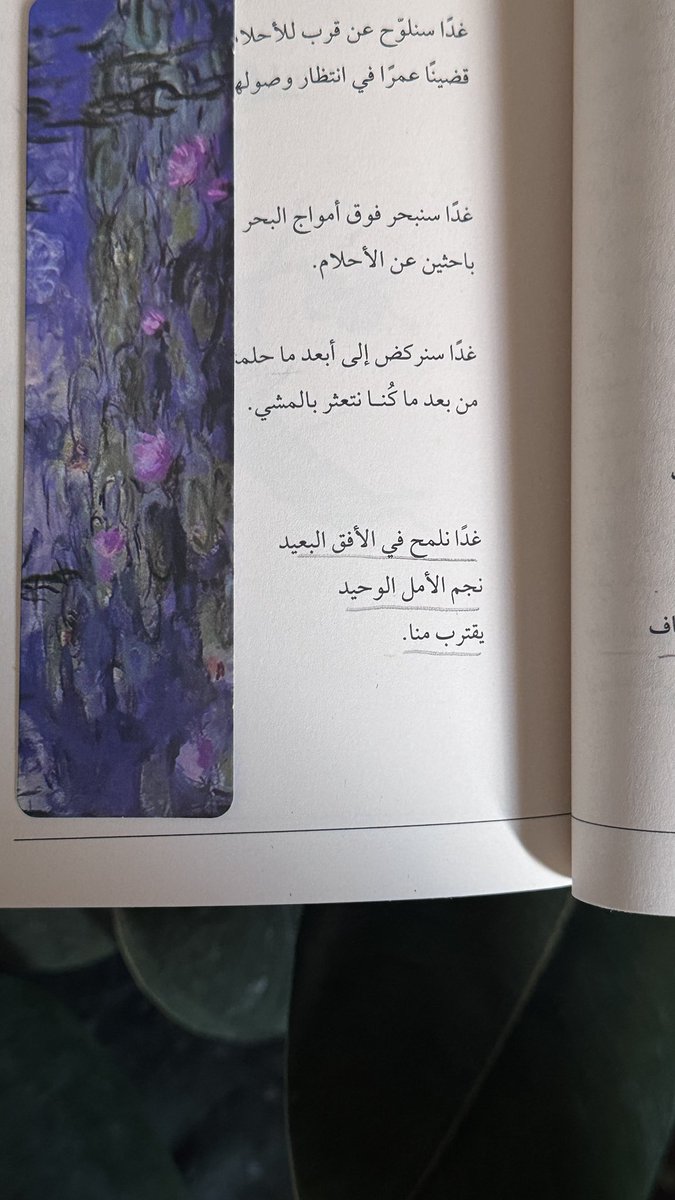 غدًا سنلوّح عن قرب
قضينًا عمرًا في انتظار
غدًا سنبحر فوق أمواج البحر
باحثين عن الأحلام.
غدًا سنركض إلى أبعد ما
من بعد ما كُنا نتعثر بالمشي.
غدًا نلمح في الأفق البعيد
نجم الأمل الوحيد
يقترب منا.